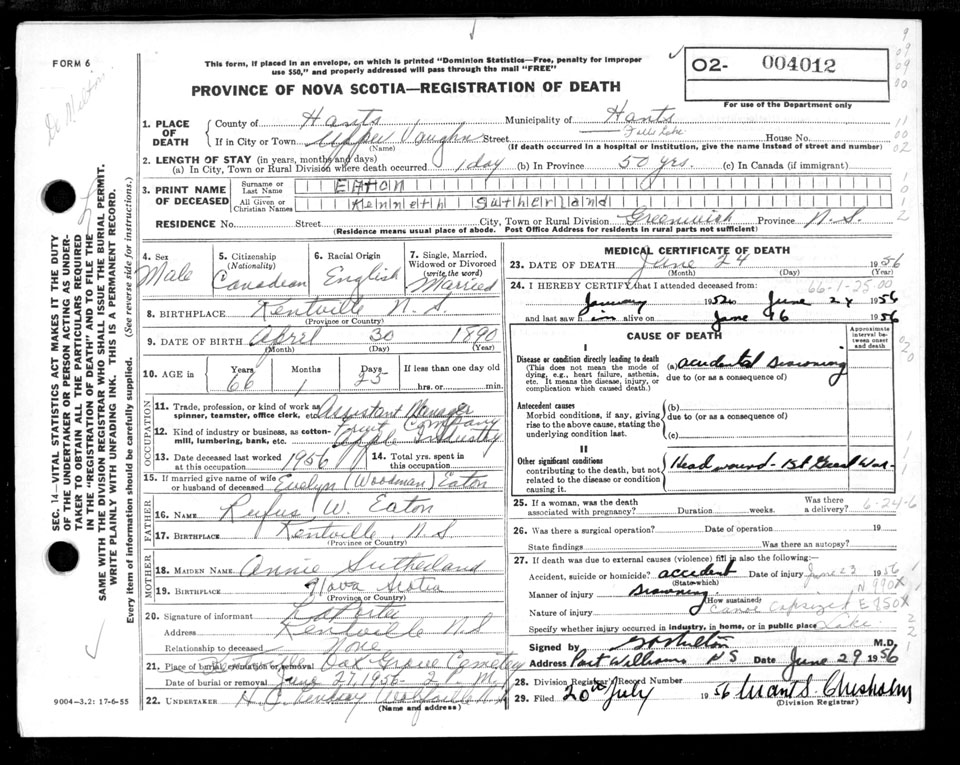 FORM 6
This form, if placed in an envelope, on which is printed "Dominion Statistics—Free, penalty for improper
use $50," and properly addressed will pass through the mail "FREE"
PROVINCE OF NOVA SCOTIA—REGISTRATION OF DEATH
O2- 004012
For use of the Department only
1. PLACE OF DEATH
County of Hants Municipality of Hants
Falls Lake
If in City or Town Upper Vaughn Street House No.
(Name) (If death occurred in a hospital or institution, give the name instead of street and number)
2. LENGTH OF STAY (in years, months and days)
(a) In City, Town or Rural Division where death occurred 1 day (b) In Province 50 yrs. (c) In Canada (if immigrant)
3. PRINT NAME OF DECEASED
Surname or Last Name EATON
All Given or Christian Names Kenneth Sutherland
RESIDENCE No. Street City, Town or Rural Division Greenwich Province N.S.
(Residence means usual place of abode. Post Office Address for residents in rural parts not sufficient)
4. Sex Male
5. Citizenship (Nationality) Canadian
6. Racial Origin English
7. Single, Married, Widowed or Divorced (write the word) Married
8. BIRTHPLACE Kentville N.S.
(Province or Country)
9. DATE OF BIRTH April 30 1890
(Month) (Day) (Year)
10. AGE in Years 66 Months 1 Days 25 If less than one day old
hrs. or min.
OCCUPATION
11. Trade, profession, or kind of work as spinner, teamster, office clerk, etc. Assistant Manager
12. Kind of industry or business, as cotton-mill, lumbering, bank, etc. Fruit Company
Apple Industry
13. Date deceased last worked at this occupation 1956
14. Total yrs. spent in this occupation
15. If married give name of wife or husband of deceased Evelyn (Woodman) Eaton
FATHER
16. NAME Rufus W. Eaton
17. BIRTHPLACE Kentville N.S
(Province or Country)
MOTHER
18. MAIDEN NAME Annie Sutherland
19. BIRTHPLACE Nova Scotia
(Province or Country)
20. Signature of informant
Address Kentville N.S
Relationship to deceased None
21. Place of burial, cremation or removal Oak Grove Cemetery
Date of burial or removal June 27, 1956 - 2 P.M.
22. UNDERTAKER H. C. Lindsay Wolfville N.S.
(Name and address)
9004—3.2: 17-6-55
MEDICAL CERTIFICATE OF DEATH
23. DATE OF DEATH June 24 1956
(Month) (Day) (Year)
66-1-25.00
24. I HEREBY CERTIFY that I attended deceased from:
January 1952 to June 24 1956
and last saw him alive on June 16 1956
CAUSE OF DEATH
Approximate interval between onset and death
I
Disease or condition directly leading to death
(This does not mean the mode of dying, e.g., heart failure, asthenia, etc. It means the disease, injury, or complication which caused death.)
(a) accidental Drowning
due to (or as a consequence of)
Antecedent causes
Morbid conditions, if any, giving rise to the above cause, stating the underlying condition last.
(b)
due to (or as a consequence of)
(c)
II
Other significant conditions
contributing to the death, but not related to the disease or condition causing it.
Head wound - 1st Great War -
25. If a woman, was the death associated with pregnancy? Duration weeks. Was there a delivery?
6-24-6
26. Was there a surgical operation? Date of operation 19
State findings Was there an autopsy?
27. If death was due to external causes (violence) fill in also the following:—
Accident, suicide or homicide? accident Date of injury June 23 1956
(State which)
Manner of injury Drowning N 990X
(How sustained)
Nature of injury Canoe Capsized E 950X
Specify whether injury occurred in industry, in home, or in public place Lake
Signed by M.D.
Address Port Williams NS Date June 29 1956
28. Division Registrar's Record Number
29. Filed 20th July 1956 Chisholm
(Division Registrar)
SEC. 14—VITAL STATISTICS ACT MAKES IT THE DUTY
OF THE UNDERTAKER OR PERSON ACTING AS UNDER-
TAKER TO OBTAIN ALL THE PARTICULARS REQUIRED
IN THE "REGISTRATION OF DEATH" AND TO FILE THE
SAME WITH THE DIVISION REGISTRAR WHO SHALL ISSUE THE BURIAL PERMIT.
WRITE PLAINLY WITH UNFADING INK. THIS IS A PERMANENT RECORD.
Every item of information should be carefully supplied. (See reverse side for instructions.)